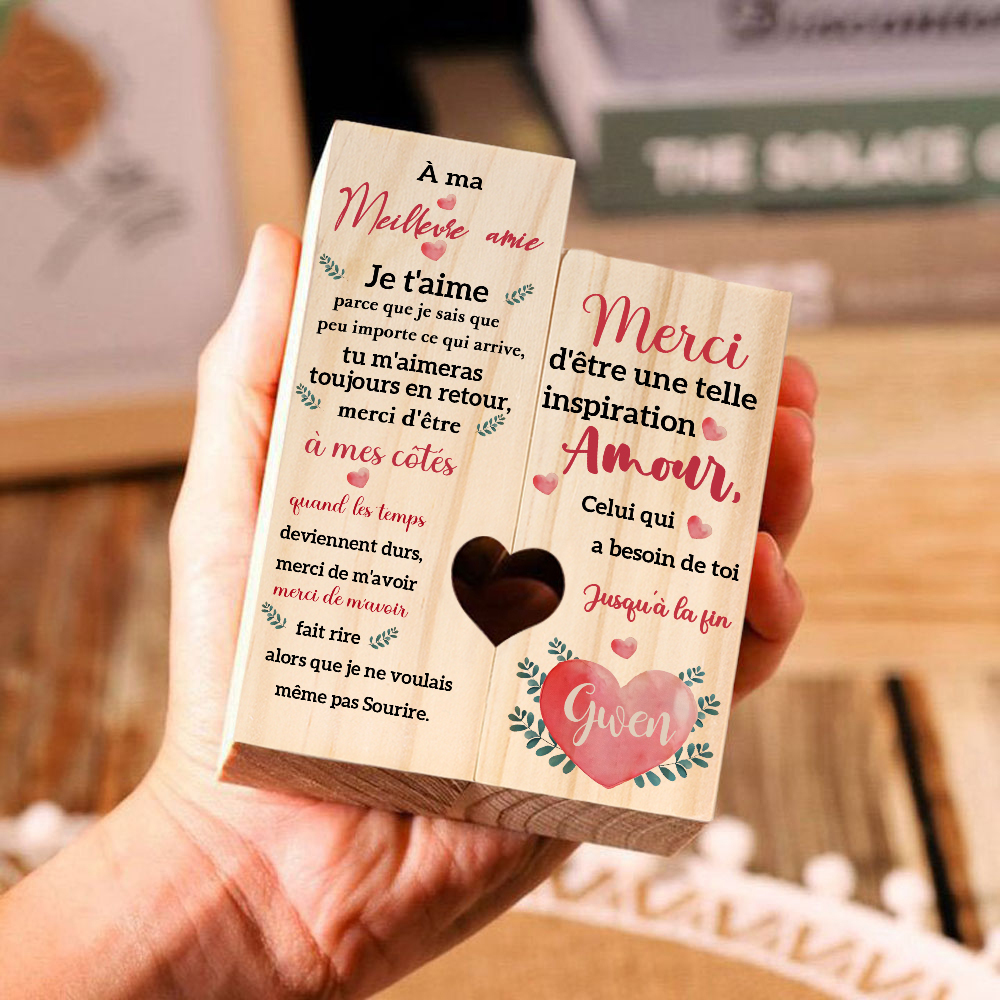 À ma
Meilleure amie
Je t'aime
parce que je sais que
peu importe ce qui arrive,
tu m'aimeras
toujours en retour,
merci d'être
à mes côtés
quand les temps
deviennent durs,
merci de m'avoir
merci de m'avoir
fait rire
alors que je ne voulais
même pas Sourire.
Merci
d'être une telle
inspiration
Amour,
Celui qui
a besoin de toi
Jusqu'à la fin
Gwen
THE SOLACE